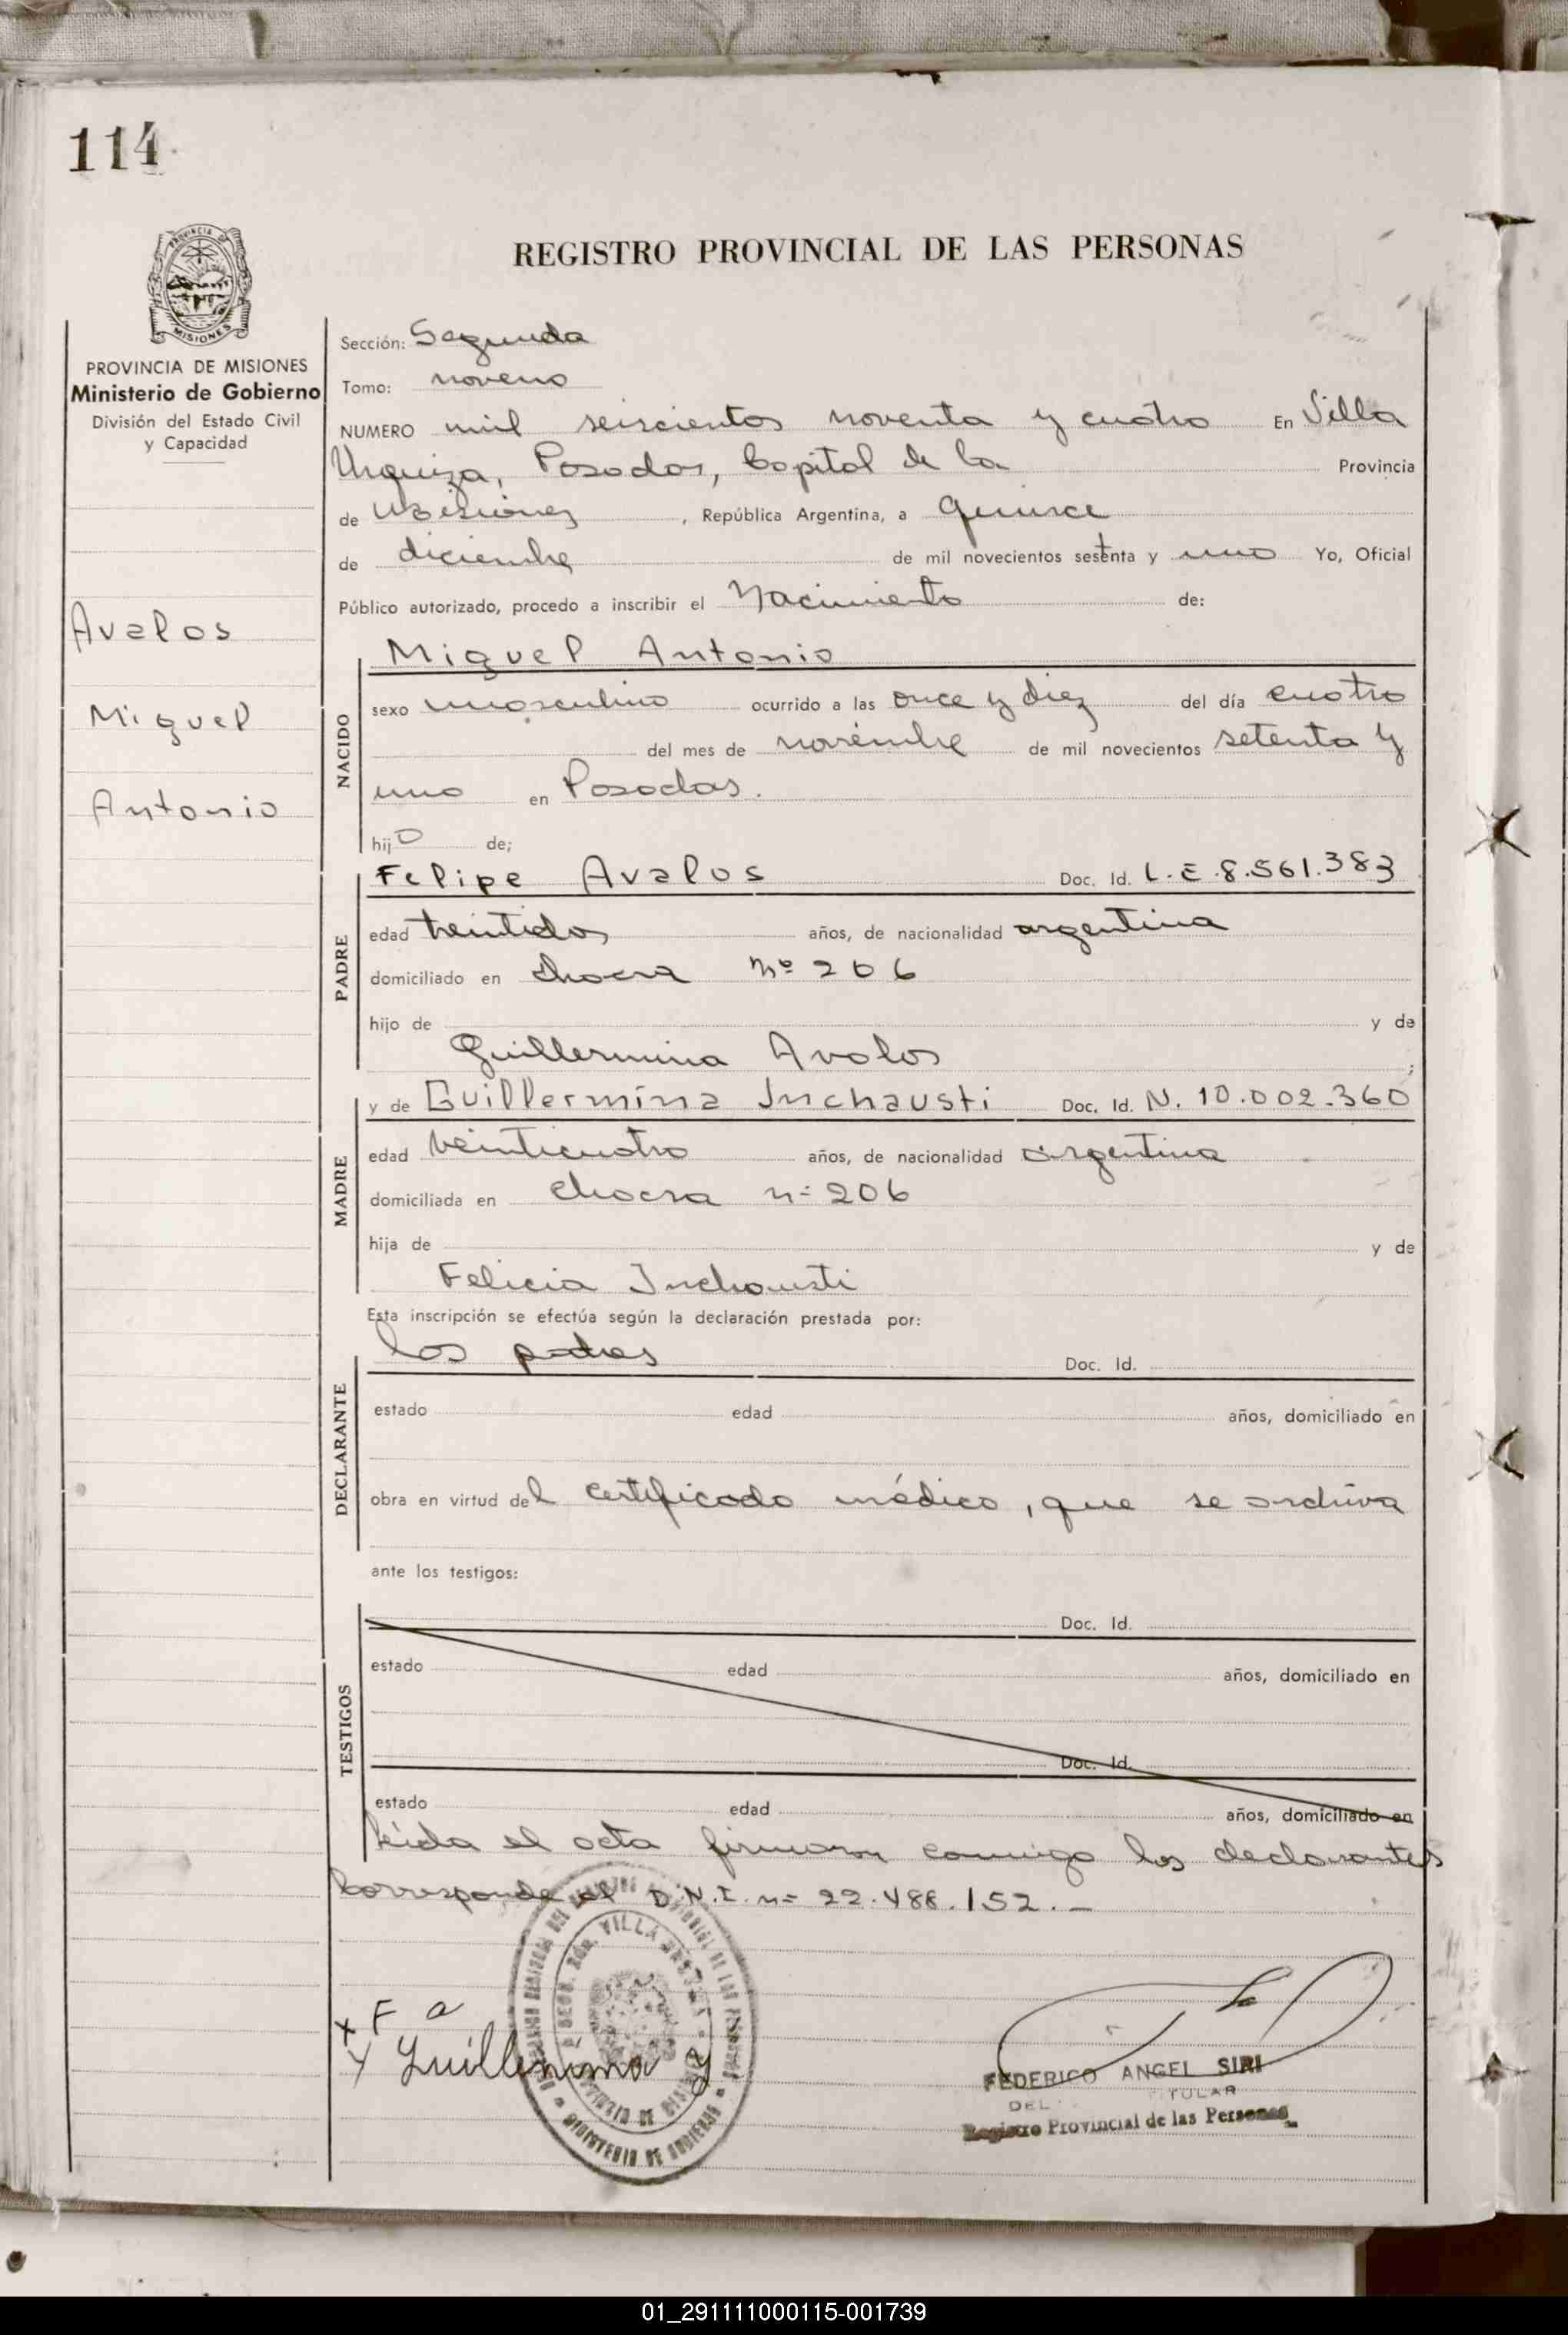 114
REGISTRO PROVINCIAL DE LAS PERSONAS
PROVINCIA DE MISIONES
Ministerio de Gobierno
División del Estado Civil
y Capacidad
Avalos
Miguel
Antonio
Sección: Segunda
Tomo: noveno
NUMERO mil seiscientos noventa y cuatro En Villa
Urquiza, Posadas, Capital de la Provincia
de Misiones, República Argentina, a quince
de diciembre de mil novecientos setenta y uno Yo, Oficial
Público autorizado, procedo a inscribir el Nacimiento de:
NACIDO
Miguel Antonio
sexo masculino ocurrido a las once y diez del día cuatro
del mes de noviembre de mil novecientos setenta y
uno en Posadas.
hijo de;
PADRE
Felipe Avalos Doc. Id. L.E.8.561.383
edad treintidos años, de nacionalidad argentina
domiciliado en chacra Nº 206
hijo de y de
Guillermina Avalos ;
MADRE
y de Guillermina Inchausti Doc. Id. N. 10.002.360
edad veinticuatro años, de nacionalidad argentina
domiciliada en chacra nº 206
hija de y de
Felicia Inchausti
Esta inscripción se efectúa según la declaración prestada por:
DECLARANTE
los padres Doc. Id.
estado edad años, domiciliado en
obra en virtud del certificado médico, que se archiva
ante los testigos:
TESTIGOS
Doc. Id.
estado edad años, domiciliado en
Doc. Id.
estado edad años, domiciliado en
leída el acta firmaron conmigo los declarantes
Corresponde al D.N.I. nº 22.488.152.-
x F a
y Guillermina y
VILLA
MINISTERIO DE GOBIERNO
FEDERICO ANGEL SIRI
TITULAR
DEL
Registro Provincial de las Personas
01_291111000115-001739